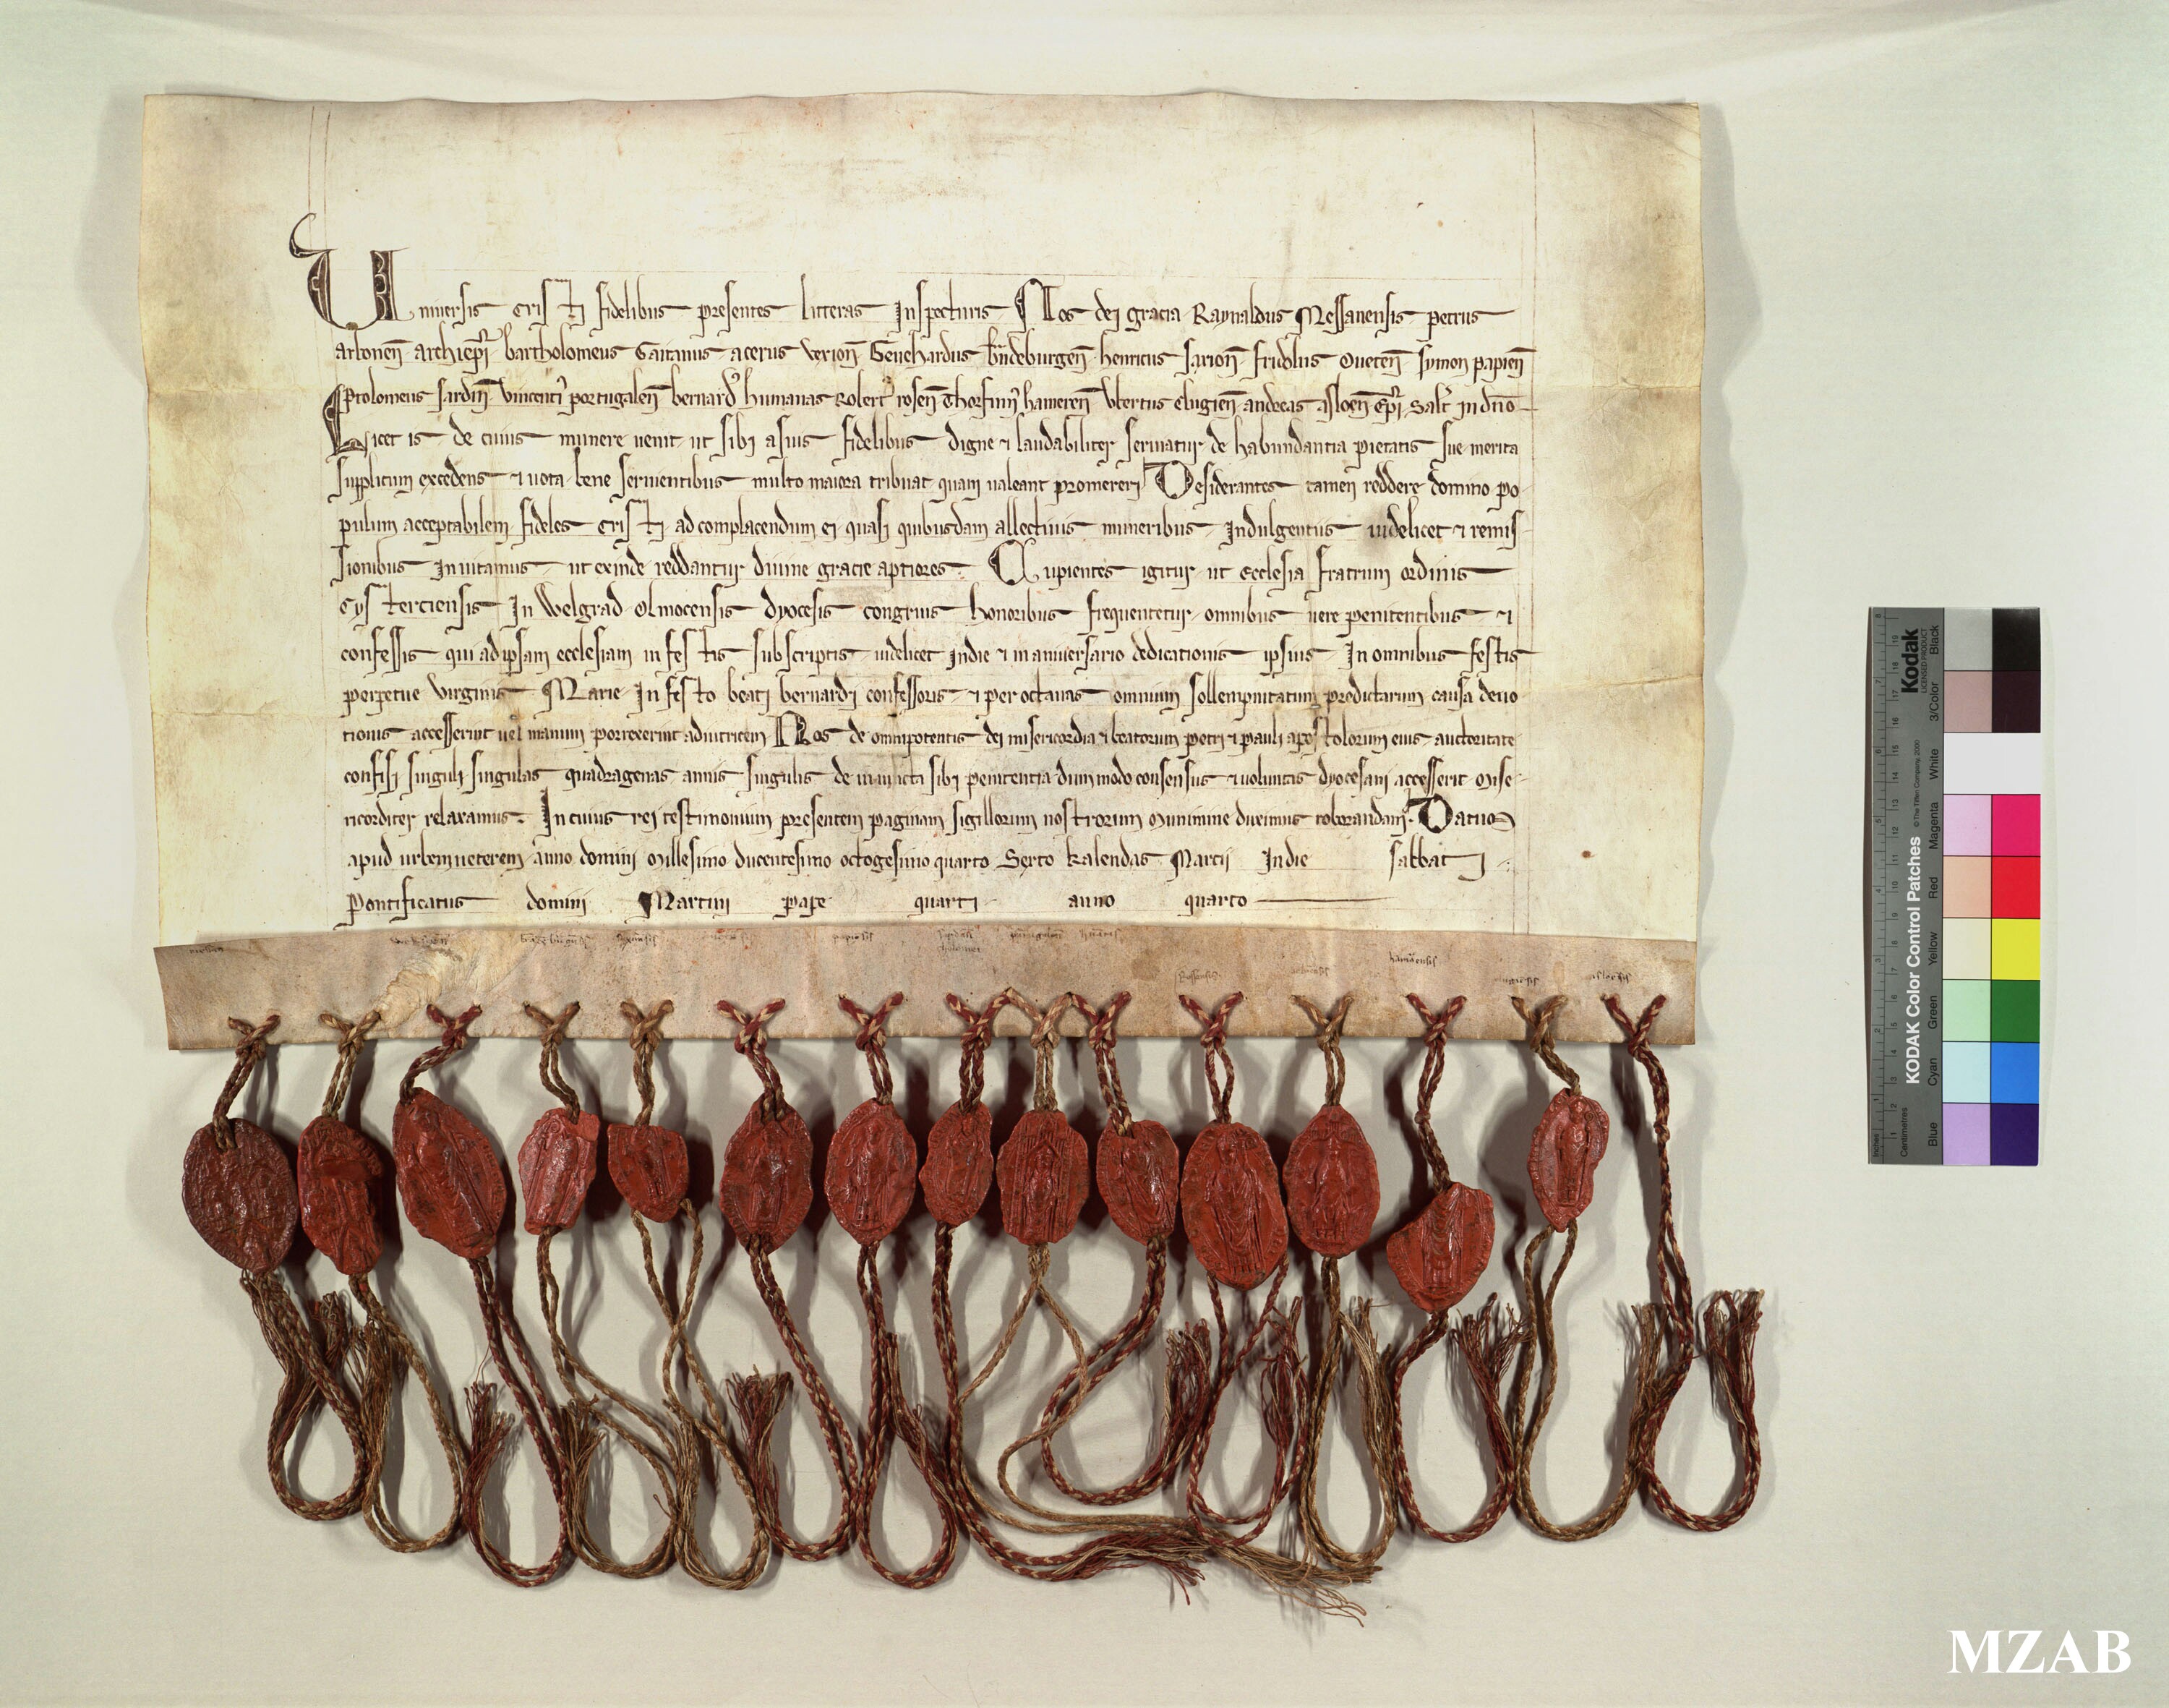 Uniuersis Cristi fidelibus presentes litteras Inspecturis Nos dei gracia Raynaldus Messanensis petrus
arboneñ archiepĩ bartholomeus Gaitanus acerus Geuehardus bñdeburgeñ henricus fridolus Oueteñ Symon papieñ
Ptolomeus sardiñ Vincenti' portugaleñ bernard' humanas Robert' roseñ Thorfinn' hamereñ Vbertus andreas Asloeñ epĩ salt' in dño
Licet is de cuius munere uenit ut sibi a suis fidelibus digne ⁊ laudabiliter seruiatur de habundantia pietatis sue merita
supplicum excedens ⁊ uota bene seruientibus multo maiora tribuat quam ualeant promereri Desiderantes tamen reddere domino po-
pulum acceptabilem fideles Cristi ad complacendum ei quasi quibusdam allectiuis muneribus Indulgentiis uidelicet ⁊ remis-
sionibus Inuitamus ut exinde reddantur diuine gracie aptiores. Cupientes igitur ut Ecclesia fratrum ordinis
Cysterciensis In Welgrad Olmocensis dyocesis congruis honoribus frequentetur omnibus uere penitentibus ⁊
confessis qui ad ipsam ecclesiam in festis subscriptis uidelicet Indie ⁊ in anniuersario dedicationis ipsius In omnibus festis
perpetue Virginis Marie In festo beati bernardi confessoris ⁊ per octauas omnium sollempnitatum predictarum causa deuo
tionis accesserint uel manum porrexerint adiutricem Nos de omnipotentis dei misericordia ⁊ beatorum petri ⁊ pauli apostolorum eius auctoritate
confisi singuli singulas quadragenas annis singulis de iniuncta sibi penitentia dummodo consensus ⁊ uoluntas dyocesani accesserit mise-
ricorditer relaxamus. In cuius rei testimonium presentem paginam sigillorum nostrorum munimine duximus roborandam. Datum
apud urbem ueterem anno domini Millesimo ducentesimo octogesimo quarto Sexto kalendas Martii Indie sabbati
Pontificatus domini Martini pape quarti anno quarto
papiesis
hamerensis
asloesis
Kodak
LICENSED PRODUCT
KODAK Color Control Patches
© The Tiffen Company, 2000
Inches
Centimetres
Blue Cyan Green Yellow Red Magenta White 3/Color Black
MZAB